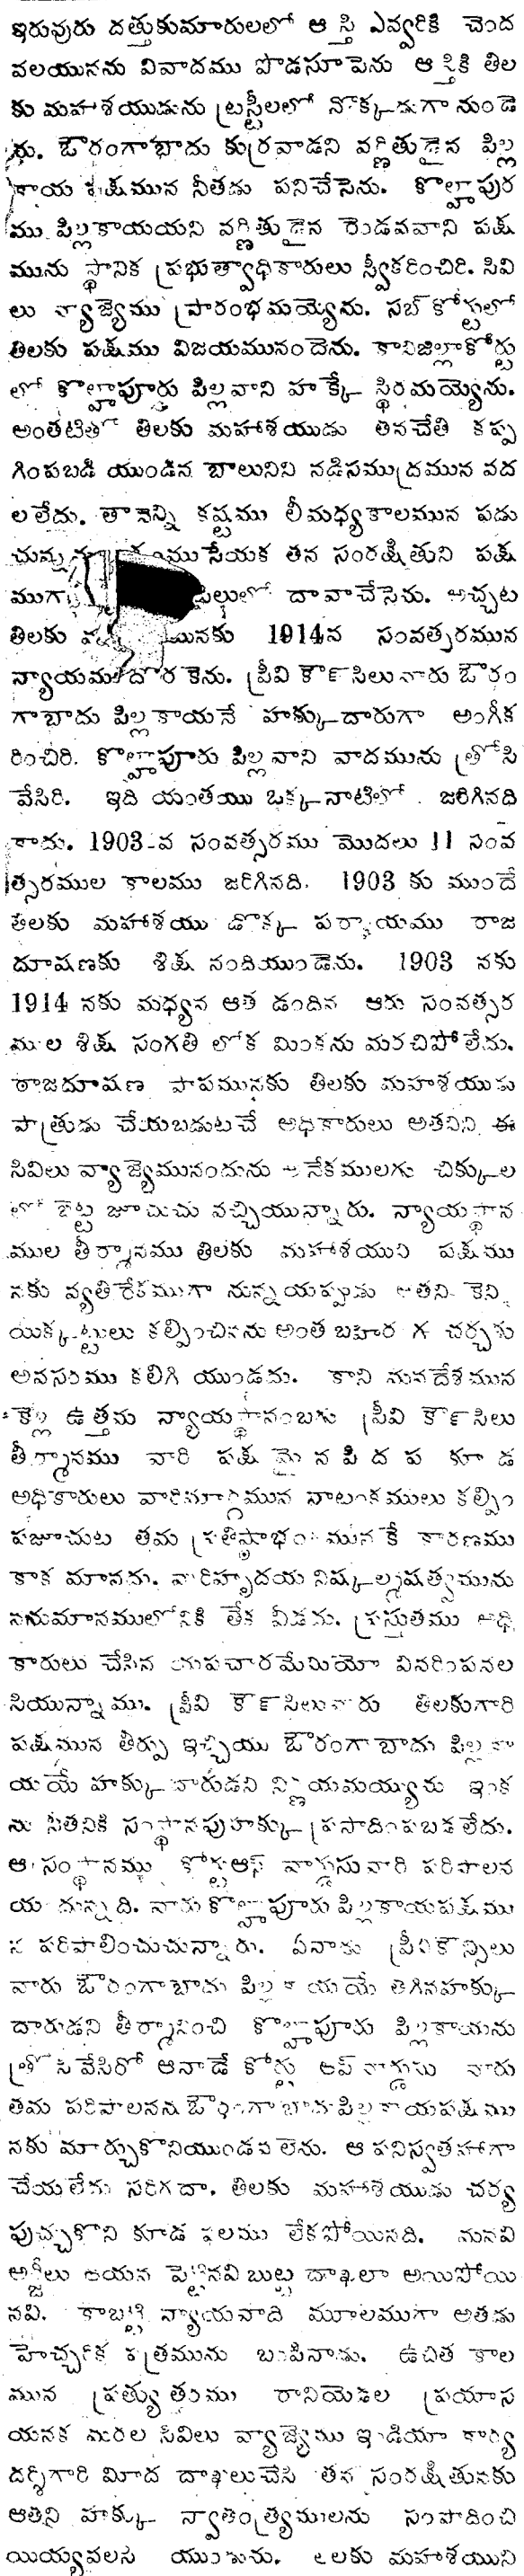 ఇరువురు దత్తుకుమారులలో ఆ స్తి ఎవ్వరికి చెంద
వలయునను వివాదము పొడసూపెను ఆ స్తికి తిల
కు మహాశయుడును ట్రస్టీలలో నొక్కడుగా నుండె
ను. ఔరంగాబాదు కుర్రవాడని వర్ణితుడైన పిల్ల
కాయ పక్షమున నీతడు పనిచేసెను. కొల్హాపుర
ము పిల్లకాయయని వర్ణితుడైన రెండవవాని పక్ష
మును స్థానిక ప్రభుత్వాధికారులు స్వీకరించిరి. సివి
లు వ్యాజ్యెము ప్రారంభమయ్యెను. సబ్ కోర్టులో
తిలకు పక్షము విజయమునందెను. కానిజిల్లాకోర్టు
లో కొల్హాపూరు పిల్లవాని హక్కే స్థిరమయ్యెను.
అంతటితో తిలకు మహాశయుడు తనచేతి కప్ప
గింపబడి యుండిన బాలునిని నడిసముద్రమున వద
లలేదు. తానెన్ని కష్టము లీమధ్యకాలమున పడు
చున్న సేయక తన సంరక్షితుని పక్ష
ముగా సిలులో దావాచేసెను. అచ్చట
తిలకు 1914న సంవత్సరమున
న్యాయము దొరకెను. ప్రీవి కౌన్సిలువారు ఔరం
గాబాదు పిల్లకాయనే హక్కుదారుగా అంగీక
రించిరి. కొల్హాపూరు పిల్లవాని వాదమును త్రోసి
వేసిరి. ఇది యంతయు ఒక్కనాటిలో జరిగినది
కాదు. 1903-వ సంవత్సరము మొదలు 11 సంవ
త్సరముల కాలము జరిగినది. 1903 కు ముందే
తిలకు మహాశయు డొక్క పర్యాయము రాజ
దూషణకు శిక్ష నందియుండెను. 1903 నకు
1914 నకు మధ్యన ఆత డందిన ఆరు సంవత్సర
ముల శిక్ష సంగతి లోక మింకను మరచిపోలేదు.
రాజదూషణ పాపమునకు తిలకు మహాశయుడు
పాత్రుడు చేయబడుటచే అధికారులు అతనిని ఈ
సివిలు వ్యాజ్యెమునందును అనేకములగు చిక్కుల
లో బెట్ట జూచుచు వచ్చియున్నారు. న్యాయస్థాన
ముల తీర్మానము తిలకు మహాశయుని పక్షము
నకు వ్యతిరేకముగా నున్నయప్పుడు అతని కెన్ని
యిక్కట్టులు కల్పించినను అంత బహిరంగ చర్చకు
అవసరము కలిగి యుండదు. కాని మనదేశమున
కెల్ల ఉత్తమ న్యాయస్థానంబగు ప్రీవి కౌన్సిలు
తీర్మానము వారి పక్ష మై న పి ద ప కూ డ
అధికారులు వారిమార్గమున నాటంకములు కల్పిం
పజూచుట తమ ప్రతిష్ఠాభంగమునకే కారణము
కాక మానదు. వారిహృదయ నిష్కల్మషత్వమును
ననుమానములోనికి తేక వీడదు. ప్రస్తుతము అధి
కారులు చేసిన యపచారమేమియో వివరింపవల
సియున్నాము. ప్రీవి కౌన్సిలువారు తిలకుగారి
పక్షమున తీర్పు ఇచ్చియు ఔరంగాబాదు పిల్లకా
యయే హక్కుదారుడని నిర్ణయమయ్యును ఇంక
ను నీతనికి సంస్థానపుహక్కు ప్రసాదింపబడలేదు.
ఆ సంస్థానము కోర్టుఆఫ్ వార్డ్సువారి పరిపాలన
యందున్నది. వారు కొల్హాపూరు పిల్లకాయపక్షము
న పరిపాలించుచున్నారు. ఏనాడు ప్రీవికౌన్సిలు
వారు ఔరంగాబాదు పిల్లకాయయే తగినహక్కు
దారుడని తీర్మానించి కొల్హాపూరు పిల్లకాయను
త్రోసివేసిరో ఆనాడే కోర్టు ఆఫ్ వార్డ్సు వారు
తమ పరిపాలనను ఔరంగాబాదుపిల్లకాయపక్షము
నకు మార్చుకొనియుండవలెను. ఆ పనిస్వతహాగా
చేయలేదు సరిగదా. తిలకు మహాశయుడు చర్య
పుచ్చుకొని కూడ ఫలము లేకపోయినది. మనవి
అర్జీలు ఆయన పెట్టినవి బుట్ట దాఖలా అయిపోయి
నవి. కాబట్టి న్యాయవాది మూలముగా అతడు
హెచ్చరిక పత్రమును బంపినాడు. ఉచిత కాల
మున ప్రత్యుత్తరము రానియెడల ప్రయాస
యనక మరల సివిలు వ్యాజ్యెము ఇండియా కార్య
దర్శిగారి మీద దాఖలుచేసి తన సంరక్షితునకు
ఆతని హక్కు స్వాతంత్ర్యములను సంపాదించి
యియ్యవలసి యుండును. తిలకు మహాశయుని